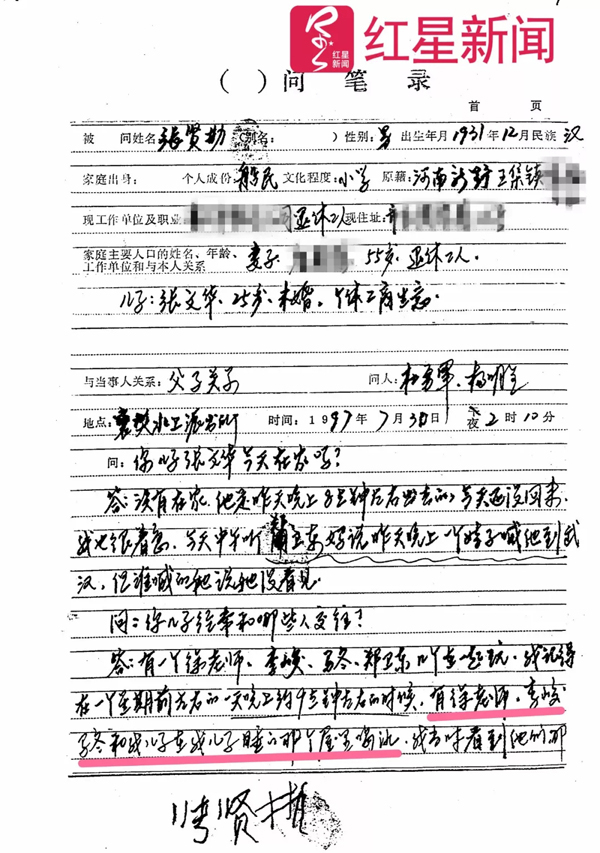 红星新闻
红星新闻
( ) 问 笔 录
首 页
被 问姓名 张贤勤 (别名: ) 性别: 男 出生年月 1931年12月 民族 汉
家庭出身: 个人成份 船民 文化程度: 小学 原籍: 河南新野王集镇
现工作单位及职业 司退休工人 现住址: 市
家庭主要人口的姓名、年龄、工作单位和与本人关系 妻子 55岁 退休工人.
儿子: 张文华、25岁、未婚、个体工商生意
与当事人关系: 父子关系 问人:
地点: 襄樊水上派出所 时间: 1997年7月30日 夜2时10分
问: 你儿子张文华今天在家吗?
答: 没有在家. 他是昨天晚上8点钟左右出去的, 今天还没回来
我也很着急. 今天中午听 说昨天晚上一个娃子喊他到武
汉, 但谁喊的他说他没看见.
问: 你儿子经常和哪些人交往?
答: 有一个徐老师、李峻、马冬、郑卫东几个在一起玩. 我记得
在一个星期前左右的一天晚上约9点钟左右的时候, 有徐老师、李峻
马冬和我儿子在我儿子睡的那个屋里喝酒, 我当时看到他们那
张贤勤